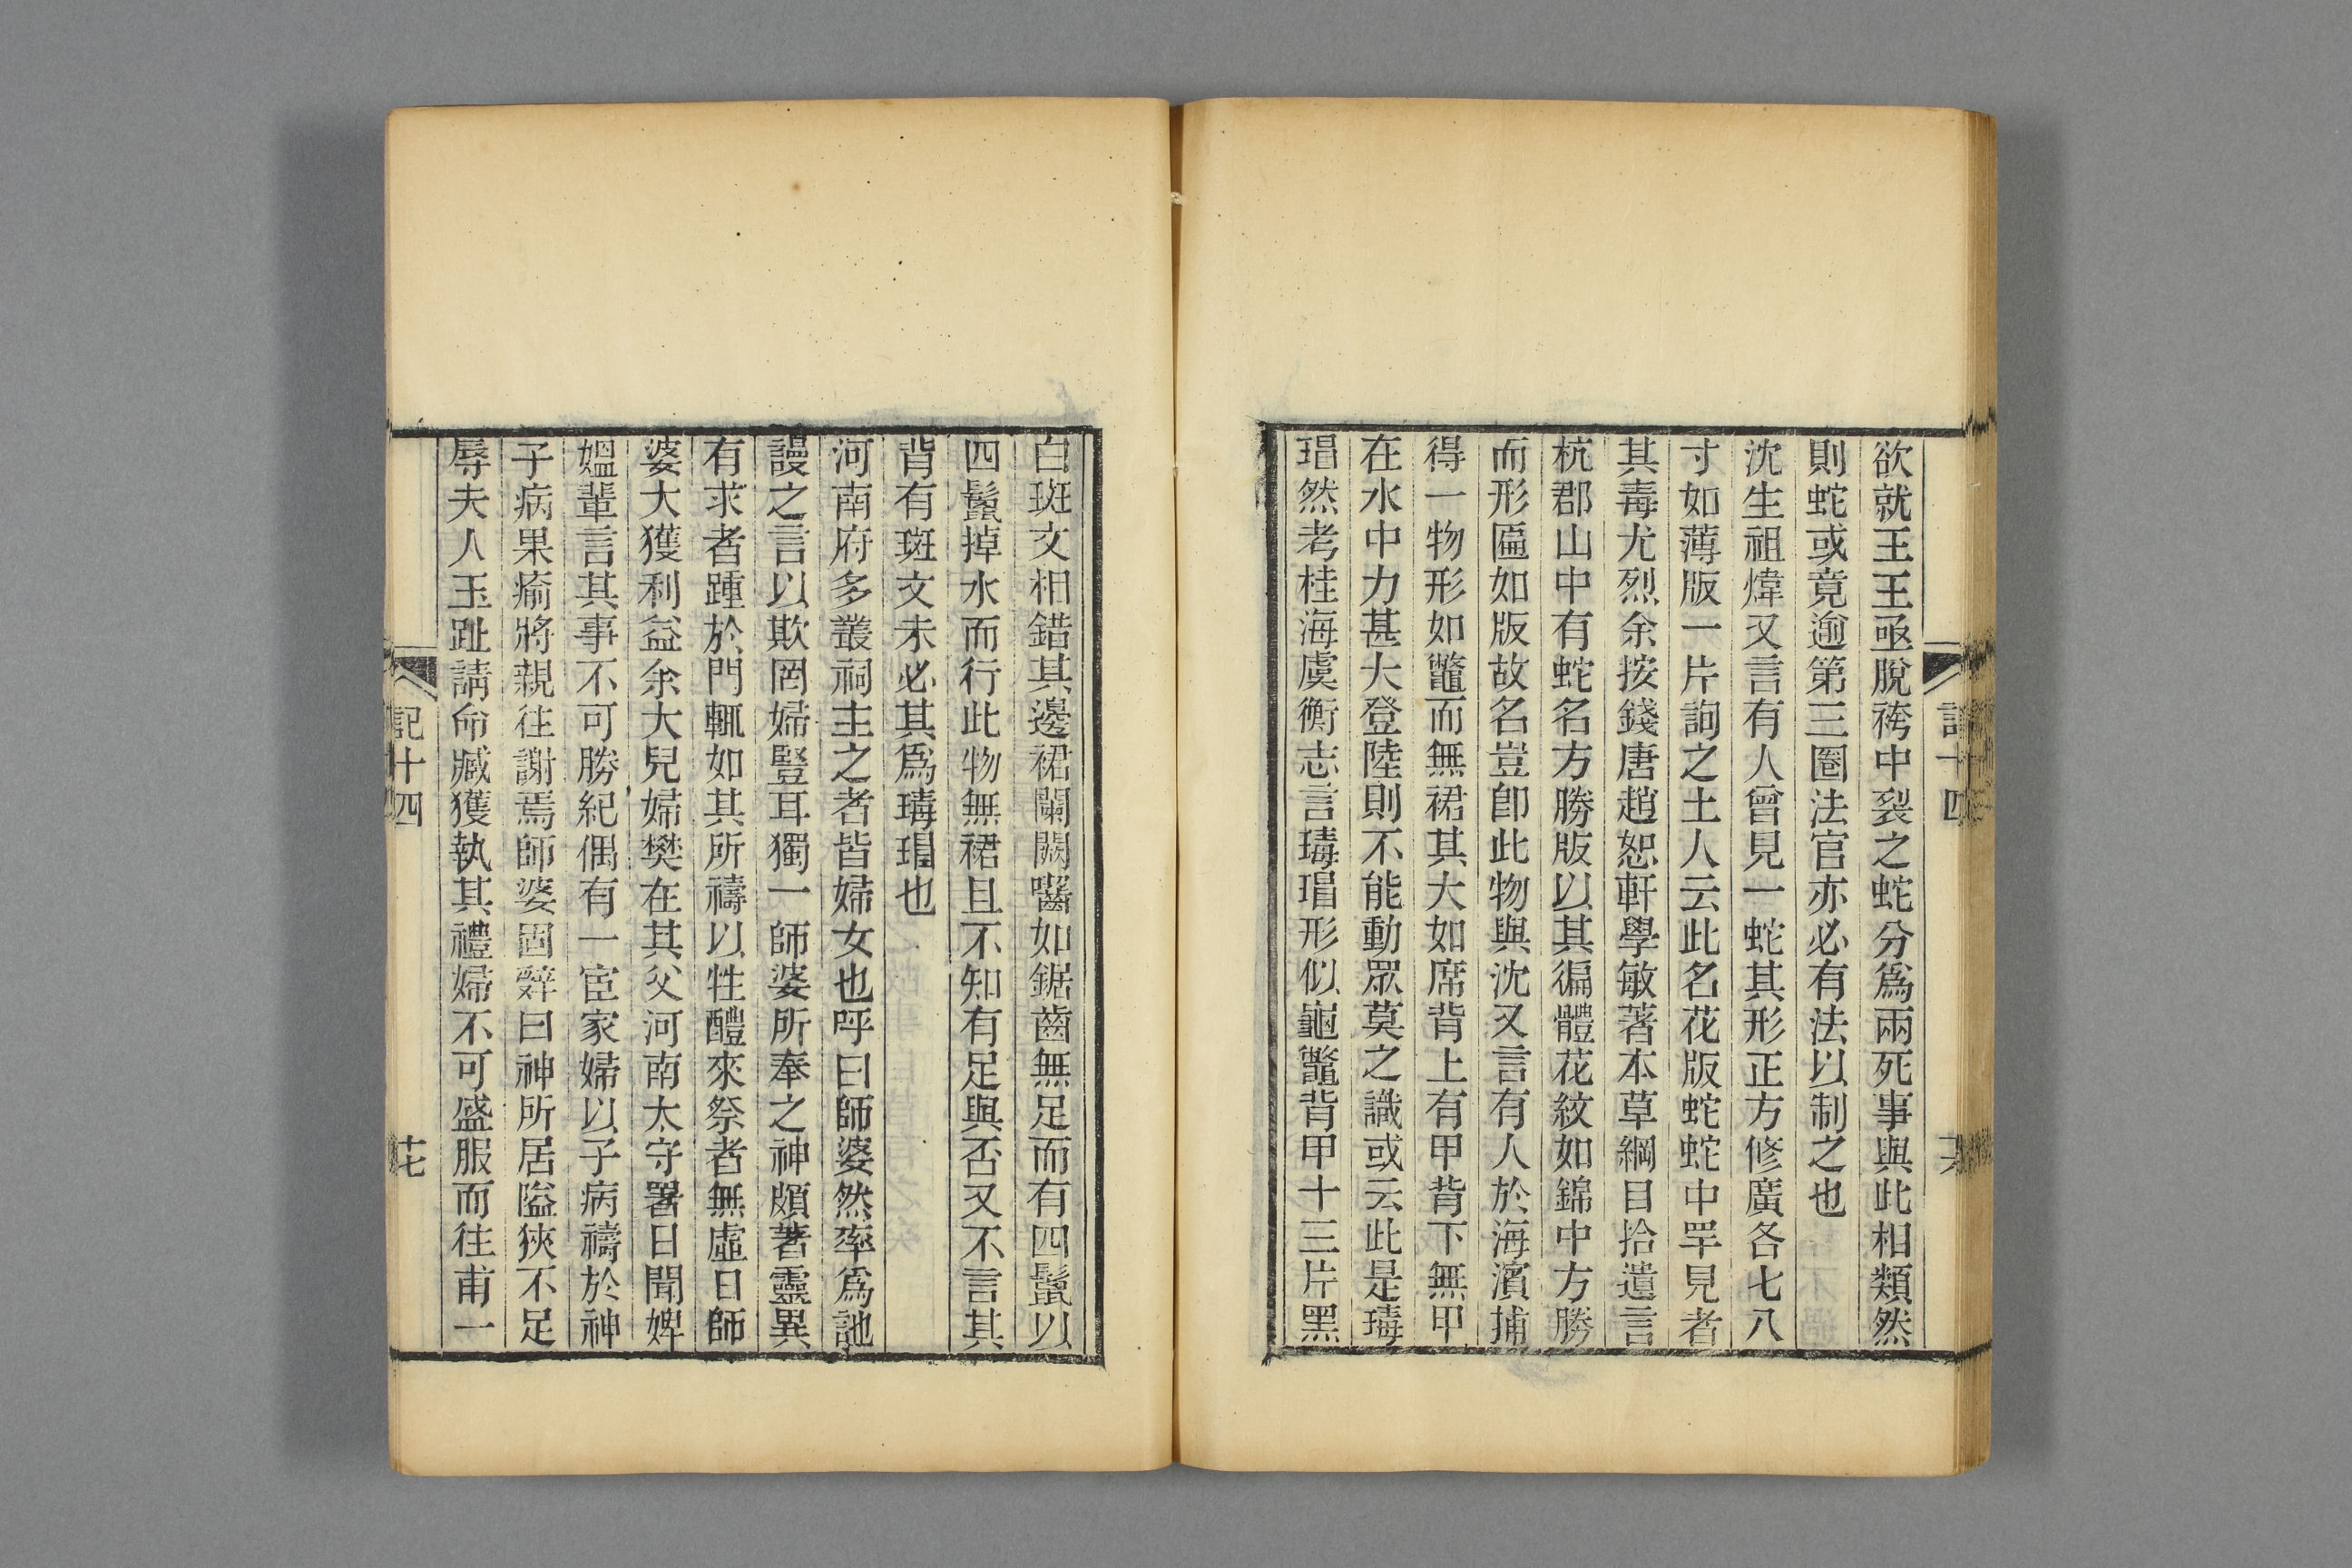 記十四
六
欲就王王亟脫袴中裂之蛇分爲兩死事與此相類然
則蛇或竟逾第三圈法官亦必有法以制之也
沈生祖煒又言有人曾見一蛇其形正方修廣各七八
寸如薄版一片詢之土人云此名花版蛇蛇中罕見者
其毒尤烈余按錢唐趙恕軒學敏著本草綱目拾遺言
杭郡山中有蛇名方勝版以其徧體花紋如錦中方勝
而形匾如版故名豈卽此物與沈又言有人於海濱捕
得一物形如鼈而無裙其大如席背上有甲背下無甲
在水中力甚大登陸則不能動眾莫之識或云此是瑇
瑁然考桂海虞衡志言瑇瑁形似龜鼈背甲十三片黑
白斑文相錯其邊裙闌闕囓如鋸齒無足而有四鬛以
四鬛掉水而行此物無裙且不知有足與否又不言其
背有斑文未必其爲瑇瑁也
河南府多叢祠主之者皆婦女也呼曰師婆然率爲訑
謾之言以欺罔婦豎耳獨一師婆所奉之神頗著靈異
有求者踵於門輒如其所禱以牲醴來祭者無虛日師
婆大獲利益余大兒婦樊在其父河南太守署日聞婢
媼輩言其事不可勝紀偶有一宦家婦以子病禱於神
子病果瘉將親往謝焉師婆固辤曰神所居隘狹不足
辱夫人玉趾請命臧獲執其禮婦不可盛服而往甫一
記十四
七